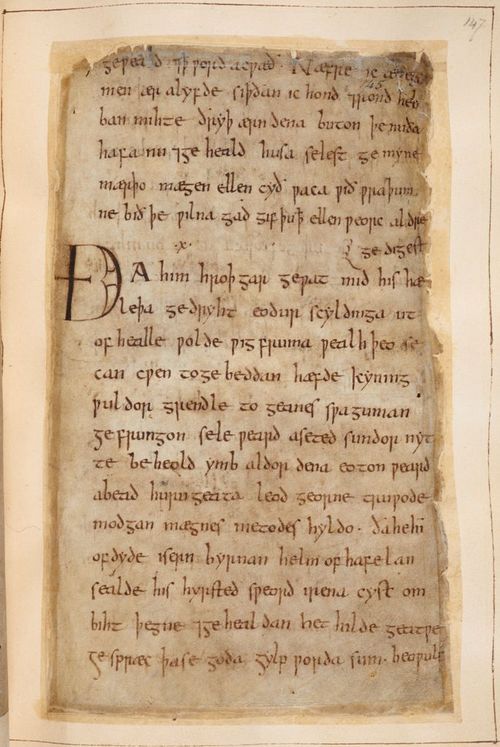 147
geƿeald ⁊ ꝥ ƿord acƿæð. Næfre ic ænegū
145
men ær alyfde siþðan ic hond ⁊ rond heb
ban mihte ðryþ ærn dena buton þe nu ða
hafa nu ⁊ ge heald husa selest ge myne
mærþo mægen ellen cyð ƿaca ƿið ƿraþum
ne bið þe ƿilna gad gif þu ꝥ ellen ƿeorc aldre
·x· ge digest
ÐA him hroþgar geƿat mid his hæ
leþa ge dryht eodur scyldinga ut
of healle ƿolde ƿig fruma ƿealh þeo se
can cƿen to ge beddan hæfde kyning
ƿuldor grendle to geanes sƿa guman
ge frungon sele ƿeard aseted sundor nyt
te beheold ymb aldor dena eoton ƿeard
abead huru geata leod georne truƿode
modgan mægnes metodes hyldo· ða he hī
of dyde isern byrnan helm of hafelan
sealde his hyrsted sƿeord irena cyst om
biht þegne ⁊ ge heal dan het hilde geatƿe
ge spræc þa se goda gylp ƿorda sum· beoƿulf